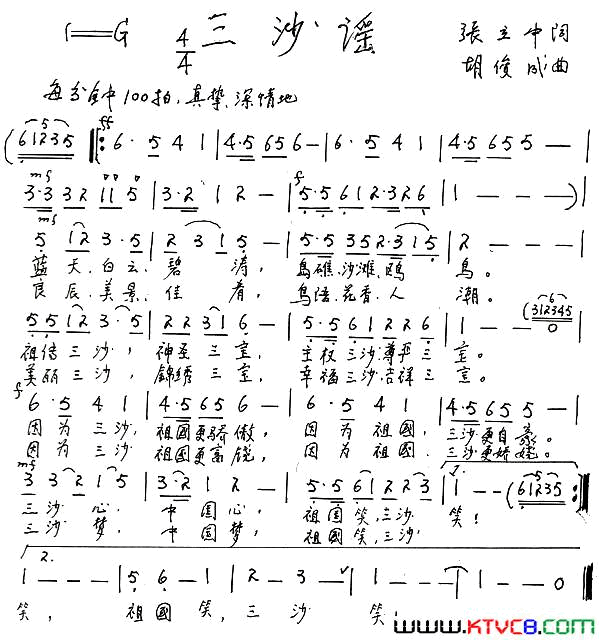 1=G 4/4 三沙谣 張立中詞
胡俊成曲
每分钟中100拍，真挚、深情地
(61235 ‖: 6· 5 4 1 | 4·5 6 5 6 - | 6· 5 4 1 | 4·5 6 5 5 - |
3·3 3 2 1 1 5 | 3·2 1 2 - | 5·5 6 1 2·3 2 6 | 1 - - - )
5 1 2 3·5 | 2 3 1 5 - | 5·5 3 5 2·3 1 5 | 2 - - - |
蓝天、白云、碧涛， 島礁、沙滩、鸥鳥。
良辰、美景、佳肴， 鸟语、花香、人潮。
5 5 1 2 3· 5 | 2 2 3 1 6 - | 5·5 6 1 2 2 6 | 1 - - (312345 0 |
祖传三沙，神圣三宝， 主权三沙，尊严三宝。
美丽三沙，錦绣三宝， 幸福三沙，吉祥三宝。
6· 5 4 1 | 4·5 6 5 6 - | 6· 5 4 1 | 4·5 6 5 5 - |
因为三沙，祖國更骄傲， 因为祖國，三沙更自豪。
因为三沙 祖國更富饶， 因为祖國，三沙更娇娆。
3 3 2 1 5 | 3·2 1 2 - | 5·5 6 1 2 2 3 | 1 - - (61235 :‖
三沙心，中國心， 祖国笑，三沙笑！
三沙梦，中国梦， 祖國笑，三沙
2.
1 - - - | 5· 6· - 1 | 2 - 3 - | 1 - - - | 1 - - 0 ‖
笑， 祖國笑，三沙笑！
WWW.KTVC8.COM